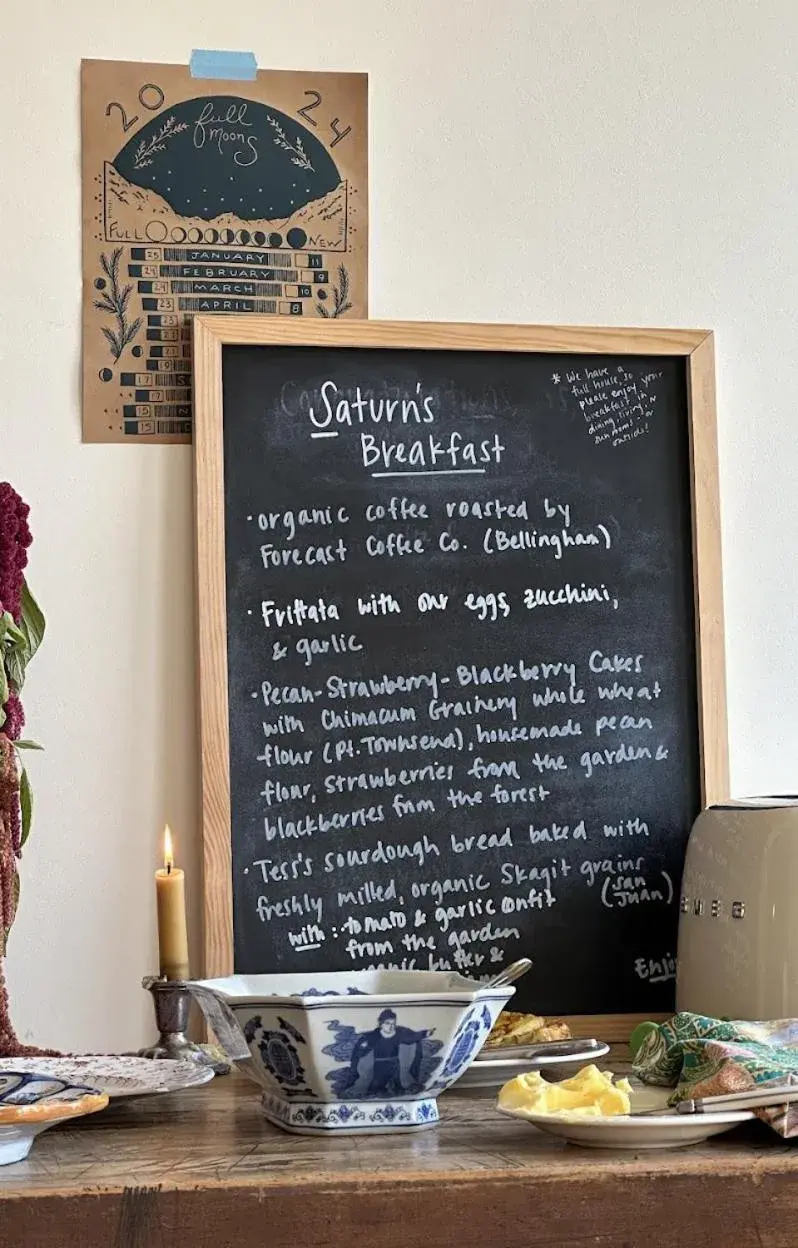 20 24
full
moons
FULL NEW
25 JANUARY 11
24 FEBRUARY 9
MARCH 10
23 APRIL 8
23
21
19
17 S
17
15 N
15
Saturn's
Breakfast
* We have a
full house, so
please enjoy your
breakfast in
dining, living, or
sunroom! or
outside!
• organic coffee roasted by
Forecast Coffee Co. (Bellingham)
• Frittata with our eggs, zucchini,
& garlic
• Pecan-Strawberry-Blackberry Cakes
with Chimacum Grainery whole wheat
flour (Pt. Townsend), housemade pecan
flour, strawberries from the garden &
blackberries from the forest
• Tess's sourdough bread baked with
freshly milled, organic Skagit grains
(San Juan)
with: tomato & garlic confit
from the garden
organic butter &
Enjoy
SMEG